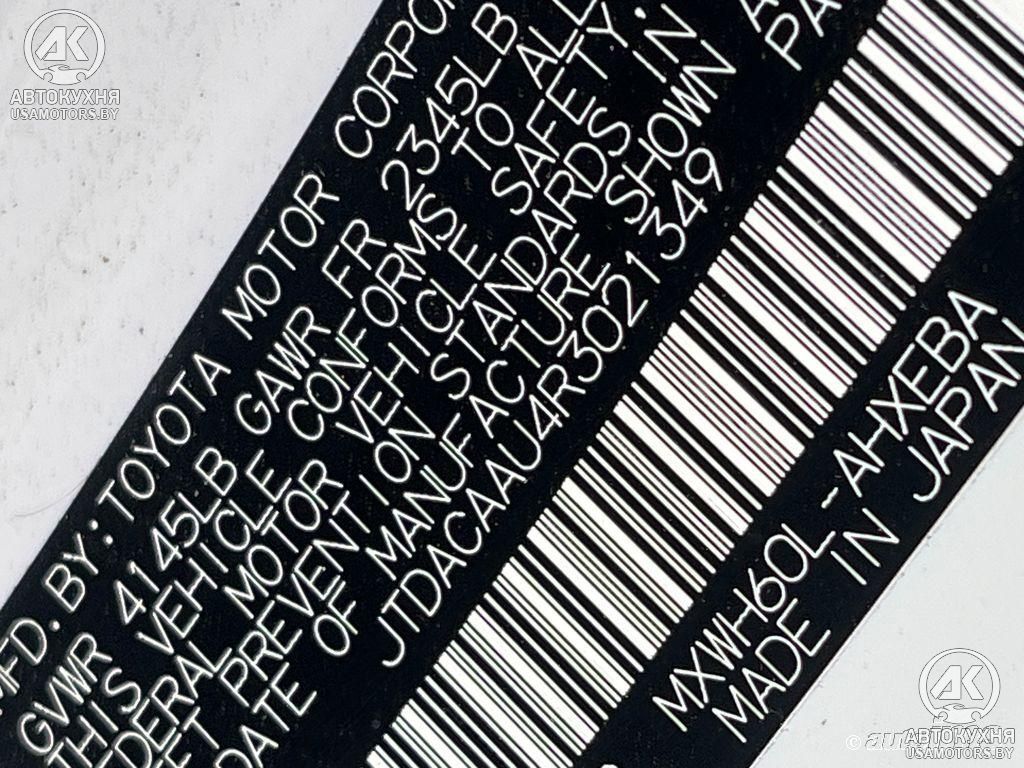 АК
АВТОКУХНЯ
USAMOTORS.BY
FD.BY:TOYOTA MOTOR CORPO
GVWR 4145LB GAWR FR 2345LB
THIS VEHICLE CONFORMS TO ALL
EDERAL MOTOR VEHICLE SAFETY,
EFT PREVENTION STANDARDS IN
DATE OF MANUFACTURE SHOWN A
JTDACAAU4R3021349 PA
MXWH60L-AHXEBA
MADE IN JAPAN
АК
АВТОКУХНЯ
USAMOTORS.BY